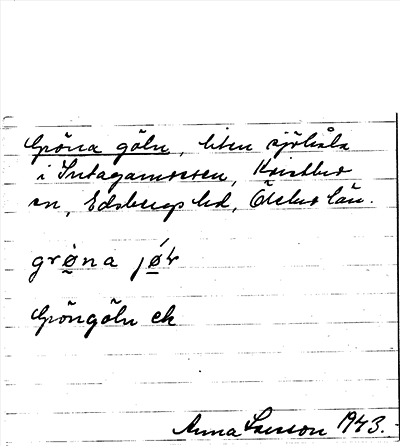 Gröna göln, liten sjöhåla
i Intagamossen, Kvistbro
sn, Edsbergs hd, Örebro län.
grø̰na jǿ̰l
Gröngöln ek
Anna Larsson 1943.